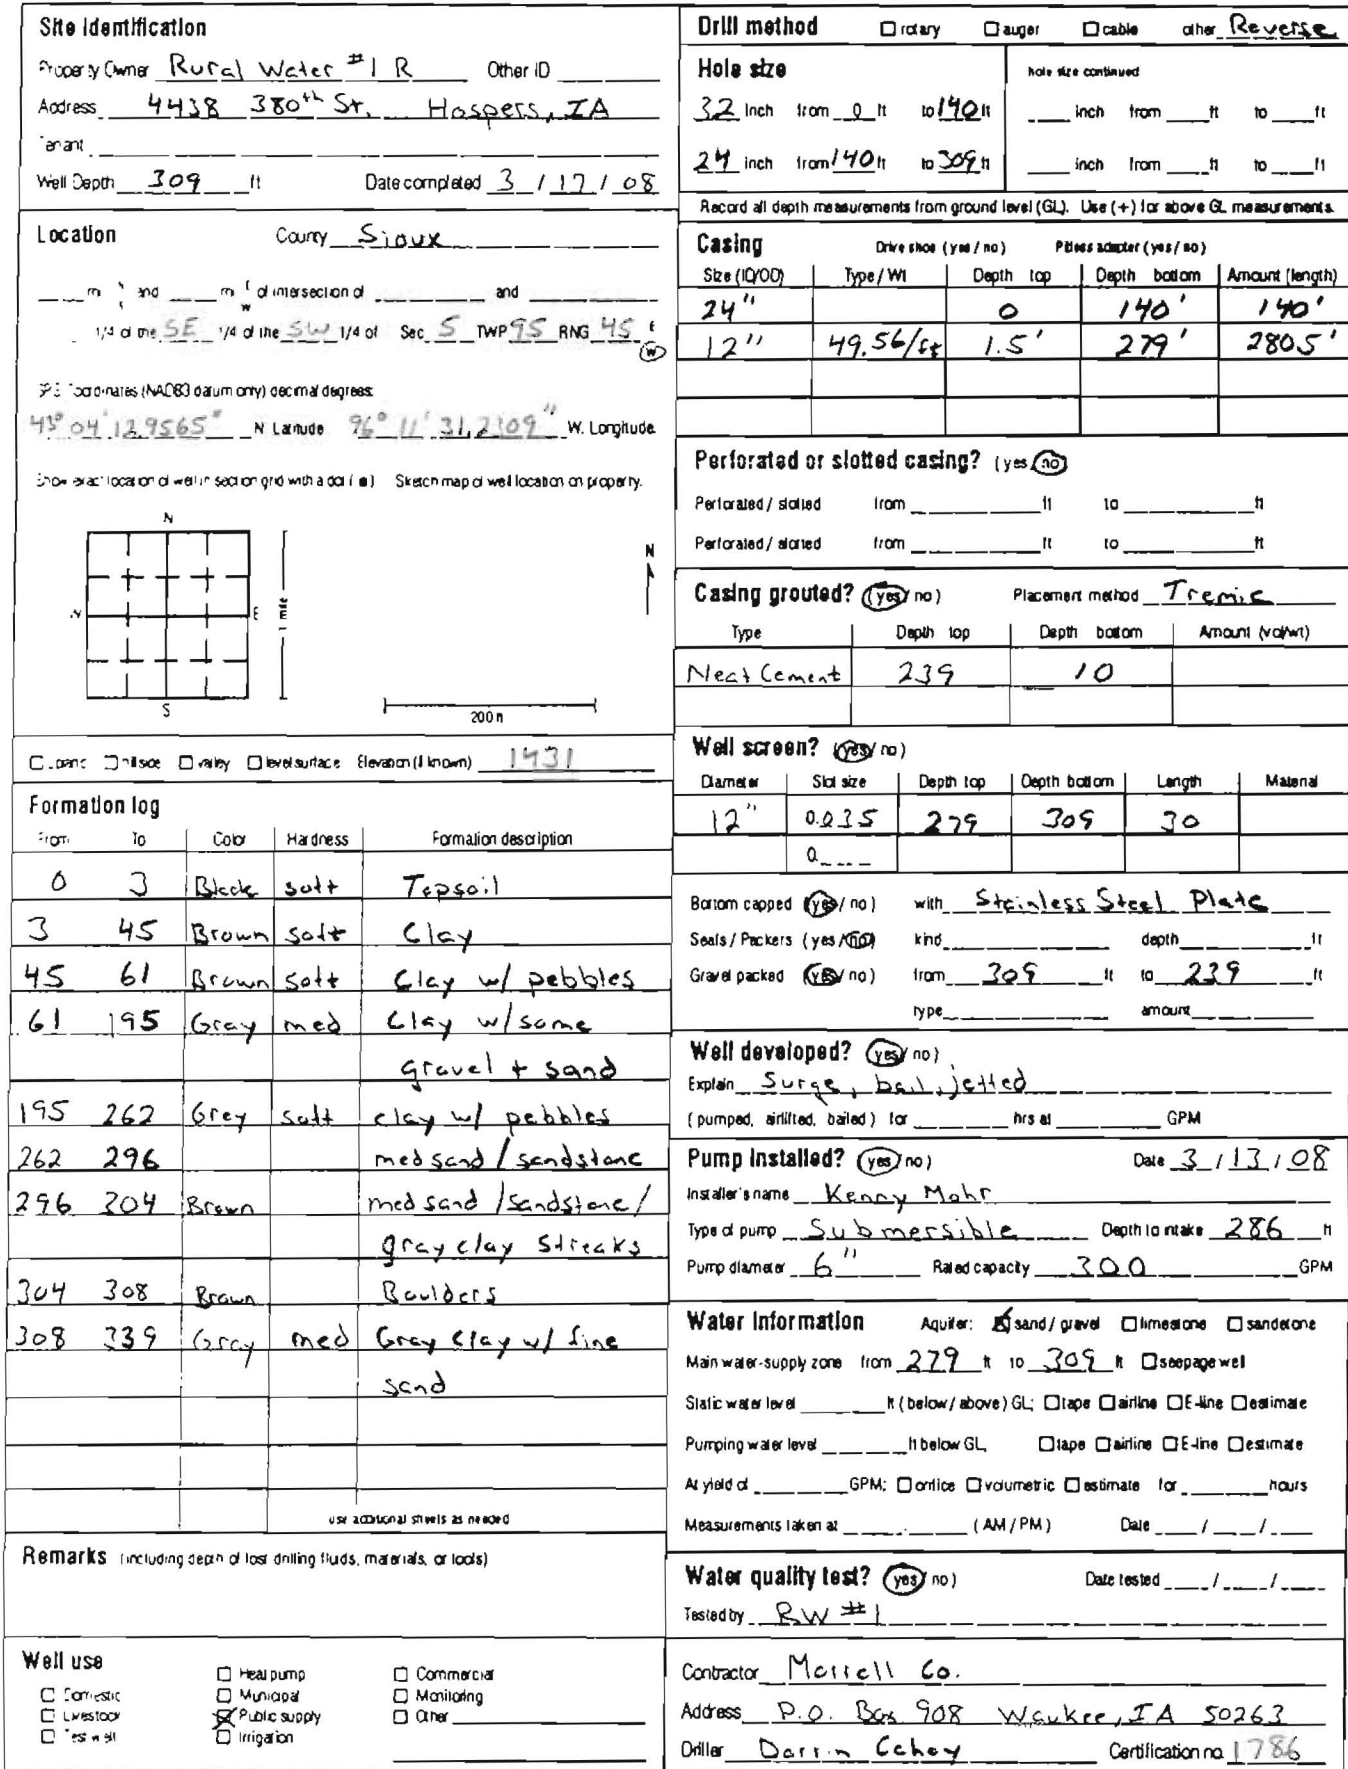 Site Identification
Property Owner Rural Water #1 R Other ID
Address 4438 380th St. Hospers, IA
Tenant
Well Depth 309 ft Date completed 3 / 17 / 08
Location County Sioux
and of intersection of and
1/4 of the SE 1/4 of the SW 1/4 of Sec 5 TWP 95 RNG 45 E
W
Coordinates (NAD83 datum only) decimal degrees:
43° 04' 12.9565" N Latitude 96° 11' 31.2309" W. Longitude
Show exact location of well in section grid with a dot Sketch map of well location on property.
N
W E
S
1 mile
N
200 ft
hillside valley level surface Elevation (if known) 1431
Formation log
From To Color Hardness Formation description
0 3 Black soft Topsoil
3 45 Brown soft Clay
45 61 Brown soft Clay w/ pebbles
61 195 Gray med Clay w/ some
gravel + sand
195 262 Grey soft clay w/ pebbles
262 296 med sand / sandstone
296 304 Brown med sand / sandstone /
gray clay streaks
304 308 Brown Boulders
308 339 Gray med Gray Clay w/ fine
sand
use additional sheets as needed
Remarks (including depth of lost drilling fluids, materials, or tools)
Well use
Domestic
Livestock
Test well
Heat pump
Municipal
Public supply
Irrigation
Commercial
Monitoring
Other
Drill method rotary auger cable other Reverse
Hole size hole size continued
32 inch from 0 ft to 140 ft inch from ft to ft
24 inch from 140 ft to 309 ft inch from ft to ft
Record all depth measurements from ground level (GL). Use (+) for above GL measurements.
Casing Drive shoe (yes / no) Pitless adapter (yes / no)
Size (ID/OD) Type / Wt Depth top Depth bottom Amount (length)
24" 0 140' 140'
12" 49.56/ft 1.5' 279' 280.5'
Perforated or slotted casing? (yes / no)
Perforated / slotted from ft to ft
Perforated / slotted from ft to ft
Casing grouted? (yes / no) Placement method Tremie
Type Depth top Depth bottom Amount (vol/wt)
Neat Cement 239 10
Well screen? (yes / no)
Diameter Slot size Depth top Depth bottom Length Material
12" 0.035 279 309 30
0.
Bottom capped (yes / no) with Stainless Steel Plate
Seals / Packers (yes / no) kind depth ft
Gravel packed (yes / no) from 309 ft to 239 ft
type amount
Well developed? (yes / no)
Explain Surge, bail, jetted
(pumped, airlifted, bailed) for hrs at GPM
Pump installed? (yes / no) Date 3 / 13 / 08
Installer's name Kenny Mohr
Type of pump Submersible Depth to intake 286 ft
Pump diameter 6" Rated capacity 300 GPM
Water Information Aquifer: sand / gravel limestone sandstone
Main water-supply zone from 279 ft to 309 ft seepage well
Static water level ft (below / above) GL; tape airline E-line estimate
Pumping water level ft below GL, tape airline E-line estimate
At yield of GPM; orifice volumetric estimate for hours
Measurements taken at (AM / PM) Date / /
Water quality test? (yes / no) Date tested / /
Tested by RW #1
Contractor Morrell Co.
Address P.O. Box 908 Waukee, IA 50263
Driller Darrin Cehoy Certification no. 1786